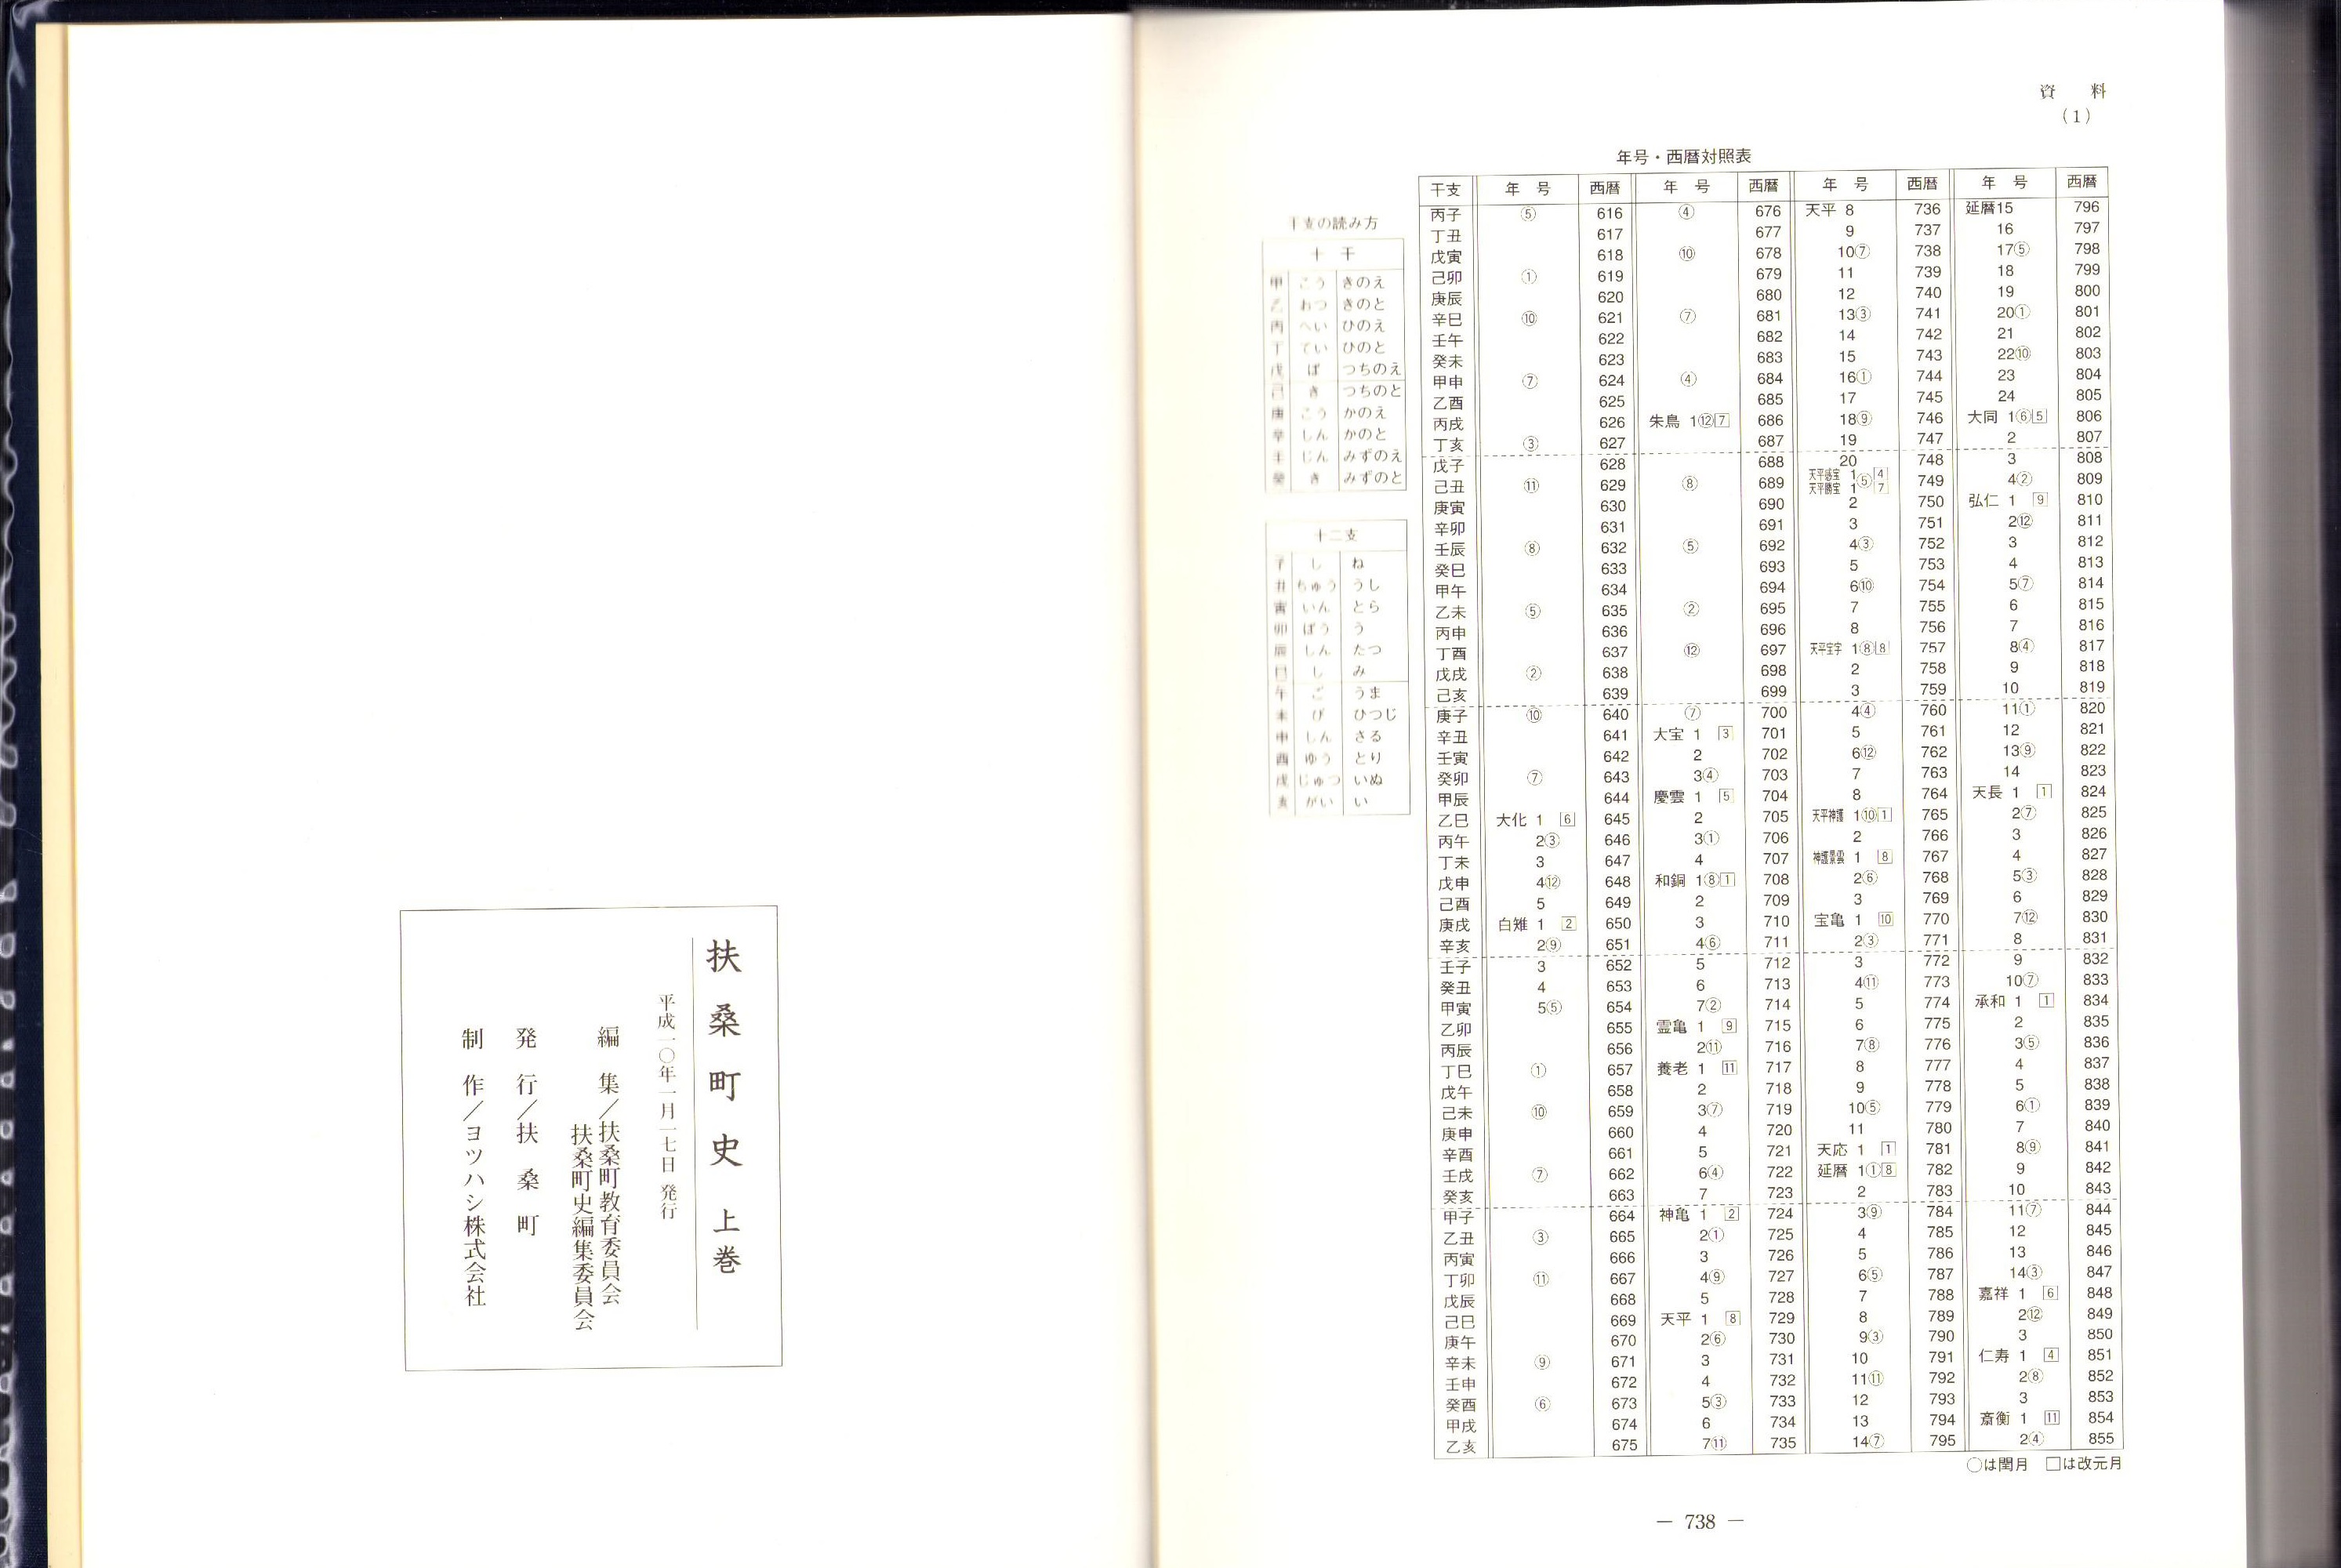 資 料
(1)
年号・西暦対照表
干支 年 号 西暦 年 号 西暦 年 号 西暦 年 号 西暦
丙子 ⑤ 616 ④ 676 天平 8 736 延暦15 796
丁丑 617 677 9 737 16 797
戊寅 618 ⑩ 678 10⑦ 738 17⑤ 798
己卯 ① 619 679 11 739 18 799
庚辰 620 680 12 740 19 800
辛巳 ⑩ 621 ⑦ 681 13③ 741 20① 801
壬午 622 682 14 742 21 802
癸未 623 683 15 743 22⑩ 803
甲申 ⑦ 624 ④ 684 16① 744 23 804
乙酉 625 685 17 745 24 805
丙戌 626 朱鳥 1⑫[7] 686 18⑨ 746 大同 1⑥[5] 806
丁亥 ③ 627 687 19 747 2 807
戊子 628 688 20 748 3 808
己丑 ⑪ 629 ⑧ 689 天平感宝 1 天平勝宝 1 ⑤ [4] [7] 749 4② 809
庚寅 630 690 2 750 弘仁 1 [9] 810
辛卯 631 691 3 751 2⑫ 811
壬辰 ⑧ 632 ⑤ 692 4③ 752 3 812
癸巳 633 693 5 753 4 813
甲午 634 694 6⑩ 754 5⑦ 814
乙未 ⑤ 635 ② 695 7 755 6 815
丙申 636 696 8 756 7 816
丁酉 637 ⑫ 697 天平宝字 1⑧[8] 757 8④ 817
戊戌 ② 638 698 2 758 9 818
己亥 639 699 3 759 10 819
庚子 ⑩ 640 ⑦ 700 4④ 760 11① 820
辛丑 641 大宝 1 [3] 701 5 761 12 821
壬寅 642 2 702 6⑫ 762 13⑨ 822
癸卯 ⑦ 643 3④ 703 7 763 14 823
甲辰 644 慶雲 1 [5] 704 8 764 天長 1 [1] 824
乙巳 大化 1 [6] 645 2 705 天平神護 1⑩[1] 765 2⑦ 825
丙午 2③ 646 3① 706 2 766 3 826
丁未 3 647 4 707 神護景雲 1 [8] 767 4 827
戊申 4⑫ 648 和銅 1⑧[1] 708 2⑥ 768 5③ 828
己酉 5 649 2 709 3 769 6 829
庚戌 白雉 1 [2] 650 3 710 宝亀 1 [10] 770 7⑫ 830
辛亥 2⑨ 651 4⑥ 711 2③ 771 8 831
壬子 3 652 5 712 3 772 9 832
癸丑 4 653 6 713 4⑪ 773 10⑦ 833
甲寅 5⑤ 654 7② 714 5 774 承和 1 [1] 834
乙卯 655 霊亀 1 [9] 715 6 775 2 835
丙辰 656 2⑪ 716 7⑧ 776 3⑤ 836
丁巳 ① 657 養老 1 [11] 717 8 777 4 837
戊午 658 2 718 9 778 5 838
己未 ⑩ 659 3⑦ 719 10⑤ 779 6① 839
庚申 660 4 720 11 780 7 840
辛酉 661 5 721 天応 1 [1] 781 8⑨ 841
壬戌 ⑦ 662 6④ 722 延暦 1①[8] 782 9 842
癸亥 663 7 723 2 783 10 843
甲子 664 神亀 1 [2] 724 3⑨ 784 11⑦ 844
乙丑 ③ 665 2① 725 4 785 12 845
丙寅 666 3 726 5 786 13 846
丁卯 ⑪ 667 4⑨ 727 6⑤ 787 14③ 847
戊辰 668 5 728 7 788 嘉祥 1 [6] 848
己巳 669 天平 1 [8] 729 8 789 2⑫ 849
庚午 670 2⑥ 730 9③ 790 3 850
辛未 ⑨ 671 3 731 10 791 仁寿 1 [4] 851
壬申 672 4 732 11⑪ 792 2⑧ 852
癸酉 ⑥ 673 5③ 733 12 793 3 853
甲戌 674 6 734 13 794 斎衡 1 [11] 854
乙亥 675 7⑪ 735 14⑦ 795 2④ 855
○は閏月 □は改元月
干支の読み方
十 干
甲 こう きのえ
乙 おつ きのと
丙 へい ひのえ
丁 てい ひのと
戊 ぼ つちのえ
己 き つちのと
庚 こう かのえ
辛 しん かのと
壬 じん みずのえ
癸 き みずのと
十二支
子 し ね
丑 ちゅう うし
寅 いん とら
卯 ぼう う
辰 しん たつ
巳 し み
午 ご うま
未 び ひつじ
申 しん さる
酉 ゆう とり
戌 じゅつ いぬ
亥 がい い
― 738 ―
扶桑町史 上巻
平成一〇年一月一七日 発行
編 集／扶桑町教育委員会
扶桑町史編集委員会
発 行／扶 桑 町
制 作／ヨツハシ株式会社